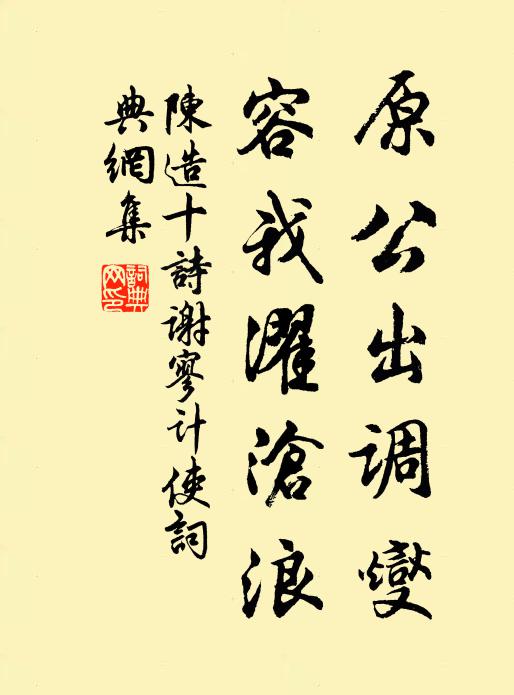 原公出調燮
容我濯滄浪
陳造十詩謝寥计使詞
典網集
詞典網印